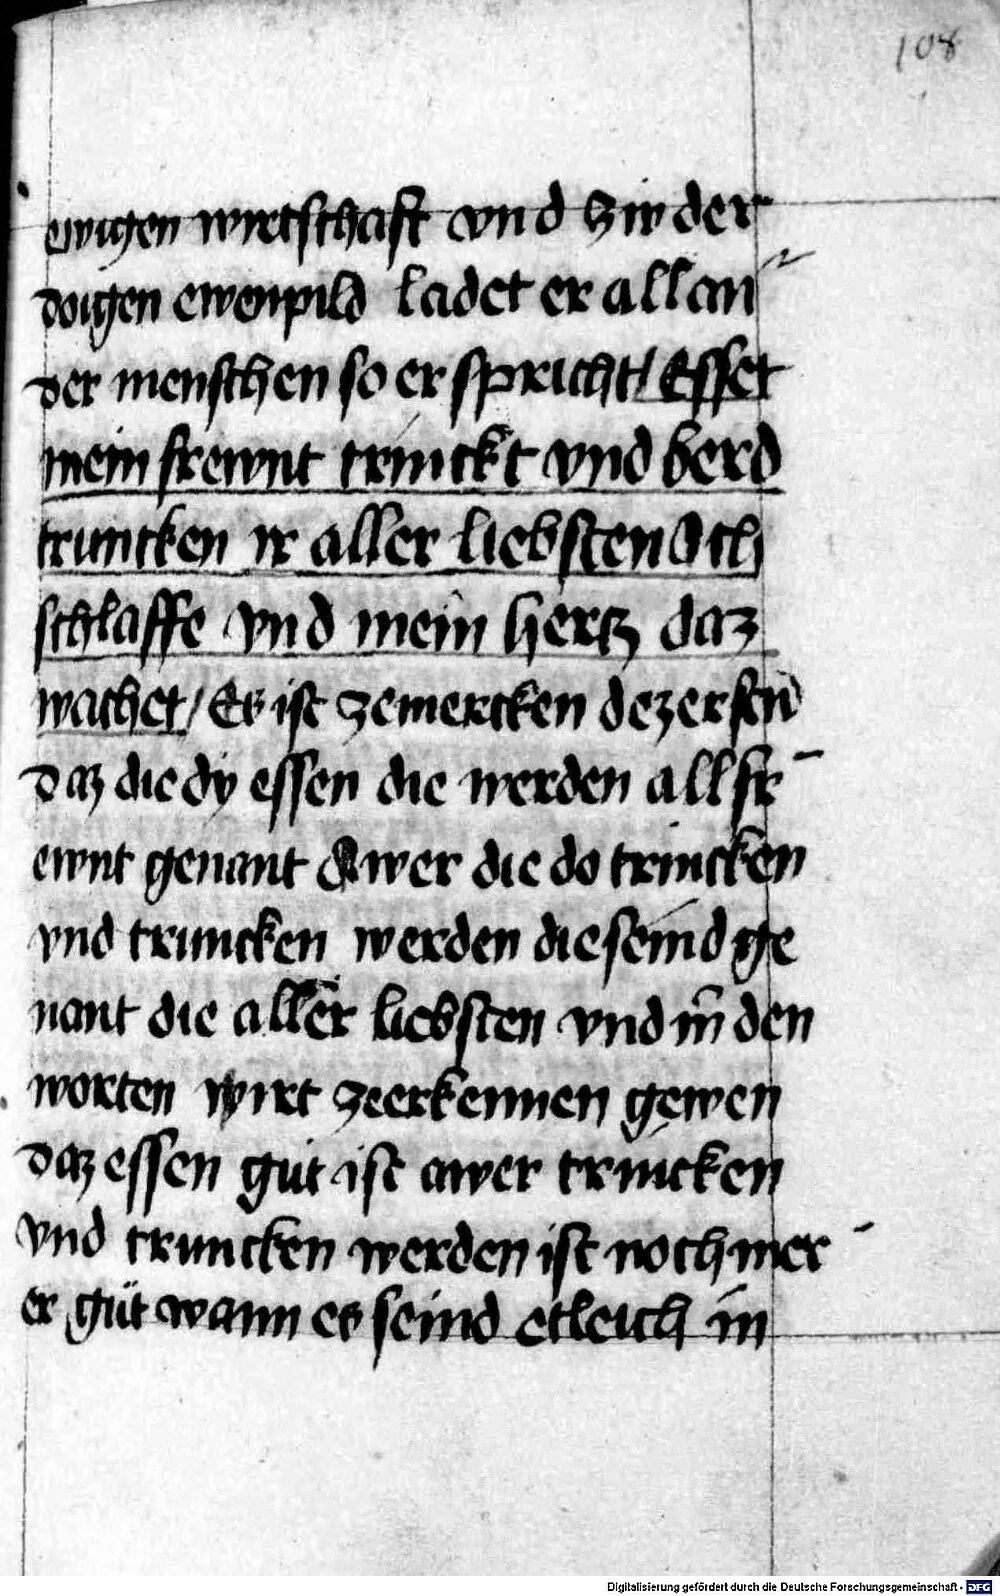 108
ewigen wirtschaft vnd hin der
doigen ewenpild ladet er all an
der menschen so er spricht / Esset
mein frewnt trinckt vnd berd
truncken ir aller liebsten Ich
schlaffe vnd mein hertz daz
wachet / Es ist zemercken dez ersten
daz die dy essen die werden all fr
ewnt genant Awer die do trincken
vnd truncken werden die seind ge
nant die aller liebsten vnd in den
worten wirt zeerkennen gewen
daz essen gut ist awer trincken
vnd truncken werden ist noch mer
er güt wann es seind etleich in
Digitalisierung gefördert durch die Deutsche Forschungsgemeinschaft - DFG